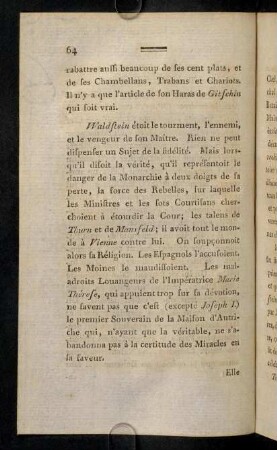 64
rabattre aussi beaucoup de ses cent plats, et
de ses Chambellans, Trabans et Chariots.
Il n'y a que l'article de son Haras de Gitschin
qui soit vrai.
Waldstein étoit le tourment, l'ennemi,
et le vengeur de son Maître. Rien ne peut
dispenser un Sujet de la fidélité. Mais lors-
qu'il disoit la vérité, qu'il représentoit le
danger de la Monarchie à deux doigts de sa
perte, la force des Rebelles, sur laquelle
les Ministres et les sots Courtisans cher-
choient à étourdir la Cour; les talens de
Thurn et de Mansfeld; il avoit tout le mon-
de à Vienne contre lui. On soupçonnoit
alors sa Réligion. Les Espagnols l'accusoient.
Les Moines le maudissoient. Les mal-
adroits Louangeurs de l'Impératrice Marie
Thérese, qui appuient trop sur sa dévotion,
ne savent pas que c'est (excepté Joseph I.)
le premier Souverain de la Maison d'Autri-
che qui, n'ayant que la véritable, ne s'a-
bandonna pas à la certitude des Miracles en
sa faveur.
Elle